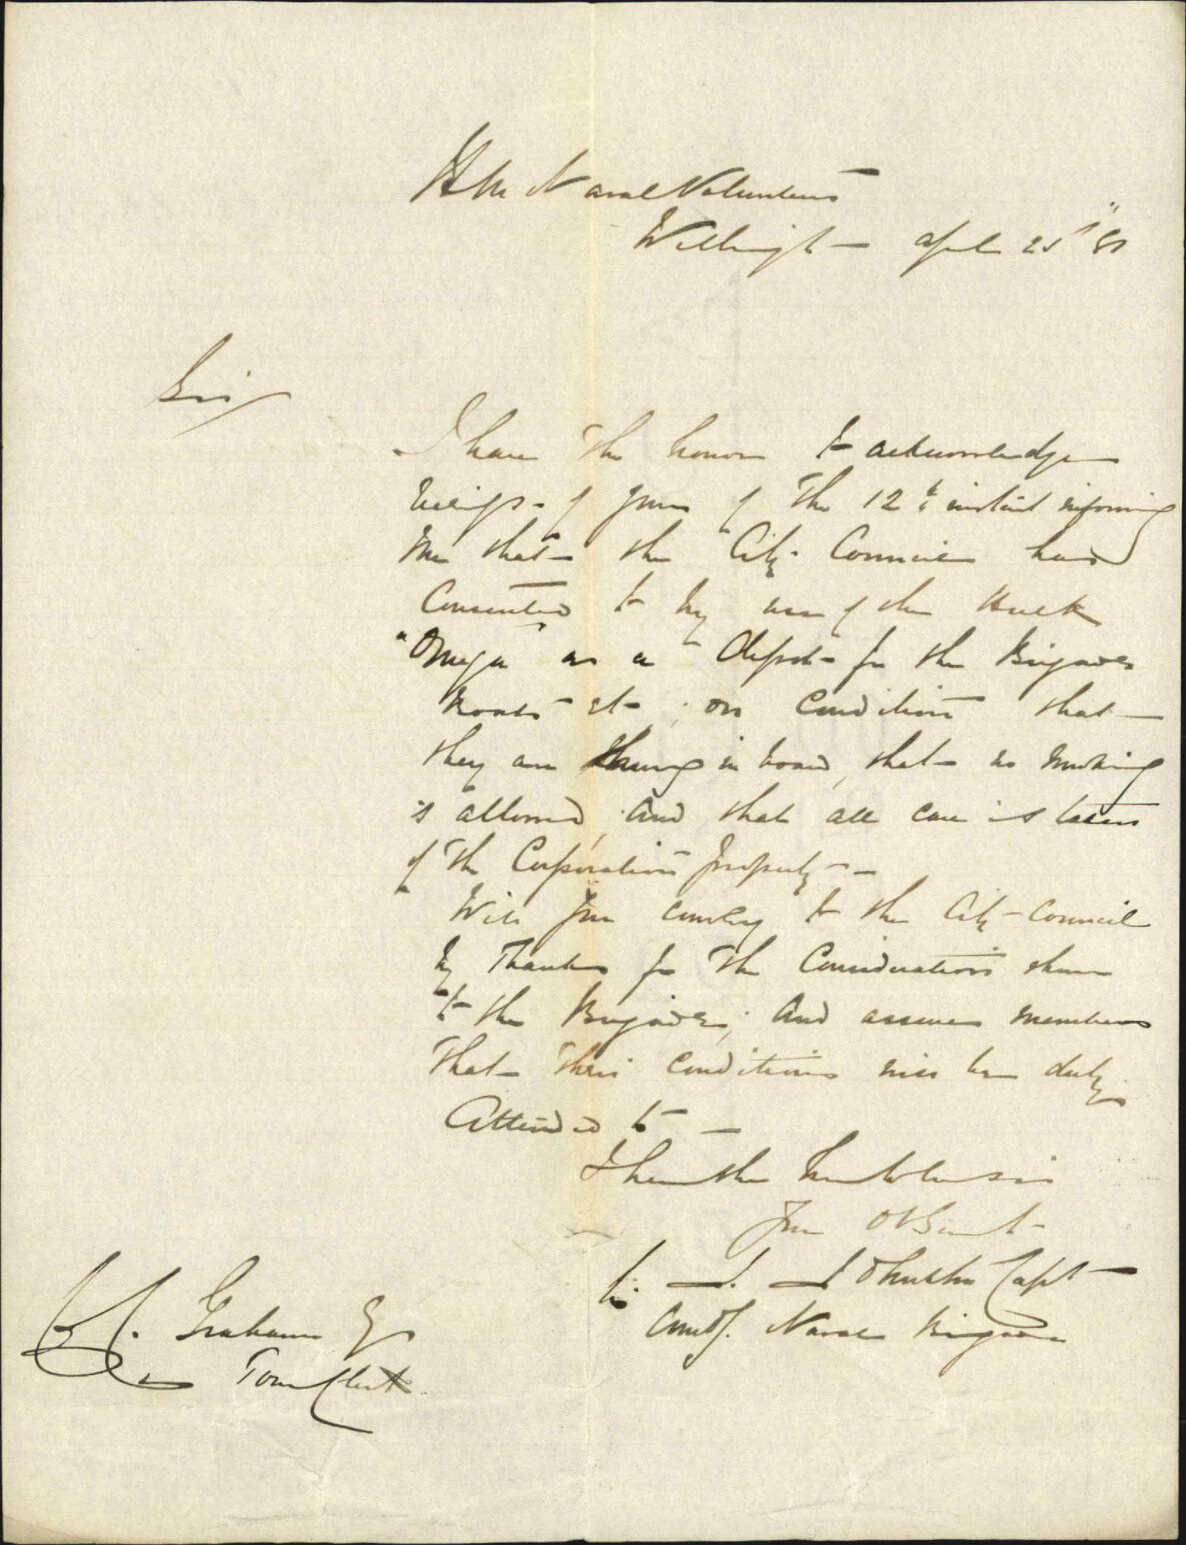 H M Naval Volunteers
Wellington April 25th 81
Sir
I have the honor to acknowledge
receipt of yours of the 12th instant informing
me that the City Council had
Consented to my use of the Hulk
"Omega" as a Depot for the Brigades
Boats etc; on Condition that
they are hung in board, that no smoking
is allowed, and that all care is taken
of the Corporation property -
Will you convey to the City Council
my Thanks for the Consideration shewn
to the Brigade; and assure members
that their conditions will be duly
Attended to -
I have the honor to be Sir
Your Ob Servt
Capt
Comdg. Naval Brigade
Graham Esq
Town Clerk